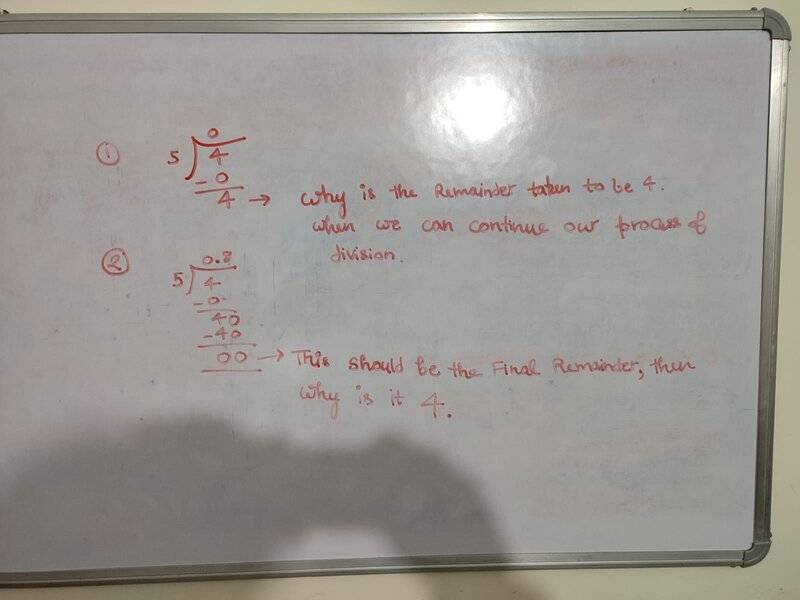 ①
0
5 4
- 0
4 → Why is the Remainder taken to be 4.
when we can continue our process of
division.
②
0.8
5 4
- 0
40
- 40
00 → This should be the Final Remainder, then
why is it 4.